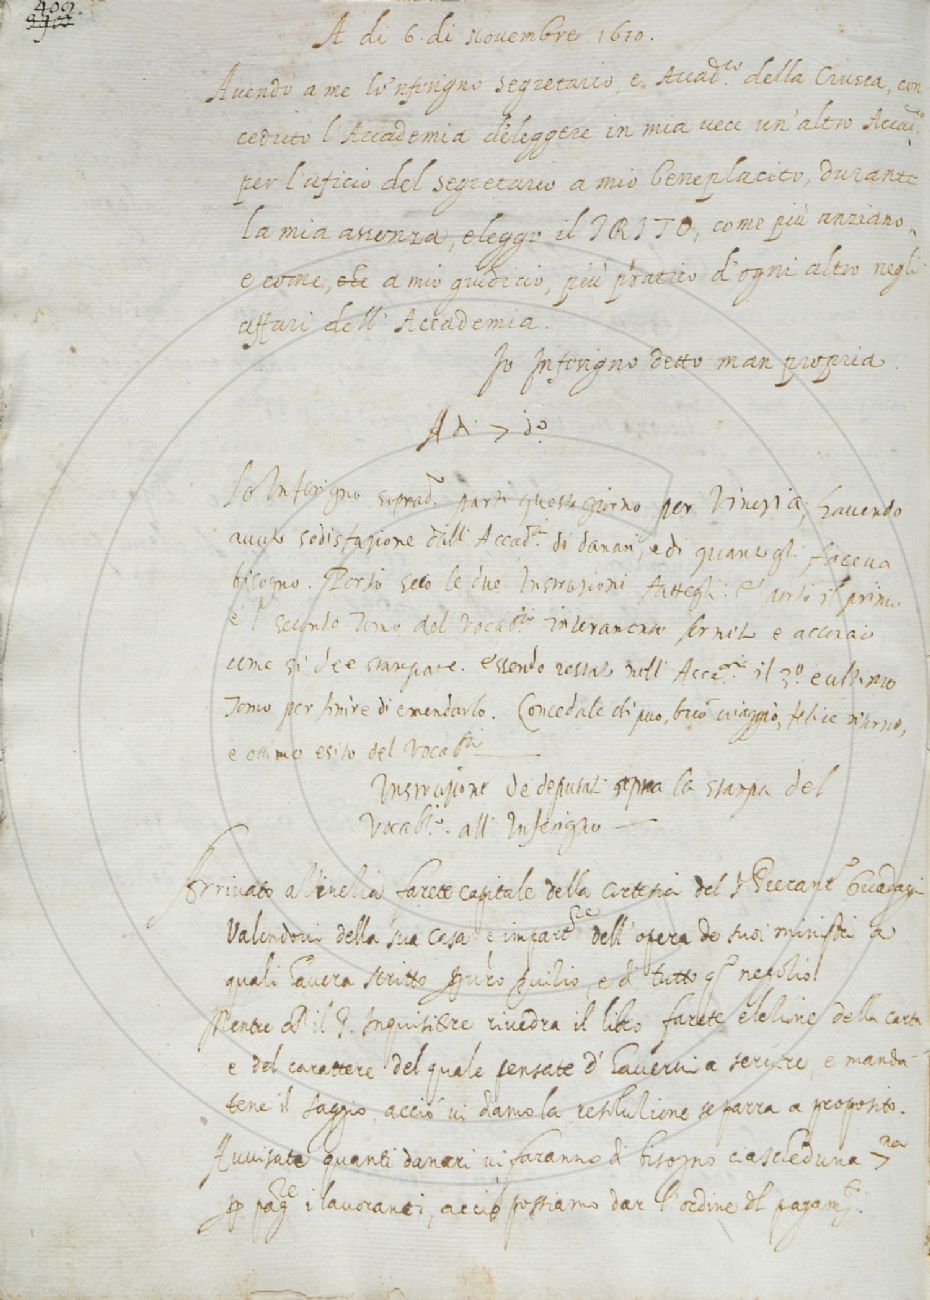 409.
A di 6. di Novembre 1610.
Avendo a me lo 'nferigno segretario, e Accad.co della Crusca, con
ceduto l'Accademia d'eleggere in mia vece un'altro Accad.o
per l'uficio del segretario a mio beneplacito, durante
la mia assenza, eleggo il TRITO, come più anziano,
e come, che a mio giudicio, più pratico d'ogni altro negli
affari dell'Accademia.
Io Inferigno detto man propria.
A di 7 d.o
Lo Inferigno soprad.o partì questo giorno per Vinezia, havendo
avuto sodisfazione dall'Accad.a di danari, e di quanto gli faceva
bisogno. Portò seco le due Instruzioni fattegli. E portò il primo
e 'l secondo Tomo del Vocab.rio interamente fornito e
come si dee stampare. Essendo restato nell'Acc.a il 3.o e ultimo
Tomo per finire di emendarlo. Concedale chi può, buō viaggio, felice ritorno,
e ottimo esito del Vocab.rio
Instruzione de deputati sopra la stampa del
Vocab.rio all'Inferigno
Arrivato a Venezia farete capitale della cortesia del S.r Guadagni
Valendovi della sua casa e in part.re dell'opera de suoi ministri a
quali havera scritto , e di tutto q.o negozio.
Mentre ch il P. Inquisitore rivedra il libro farete elezione della carta
e del carattere del quale pensate d'havervi a servire, e manda-
tene il saggio, acciò vi diamo la resoluzione se parrà a proposito.
Avvisate quanti danari vi faranno di bisogno ciascheduna 7.na
p pag.re i lavoranti, acciò possiamo dar l'ordine dl pagam.to